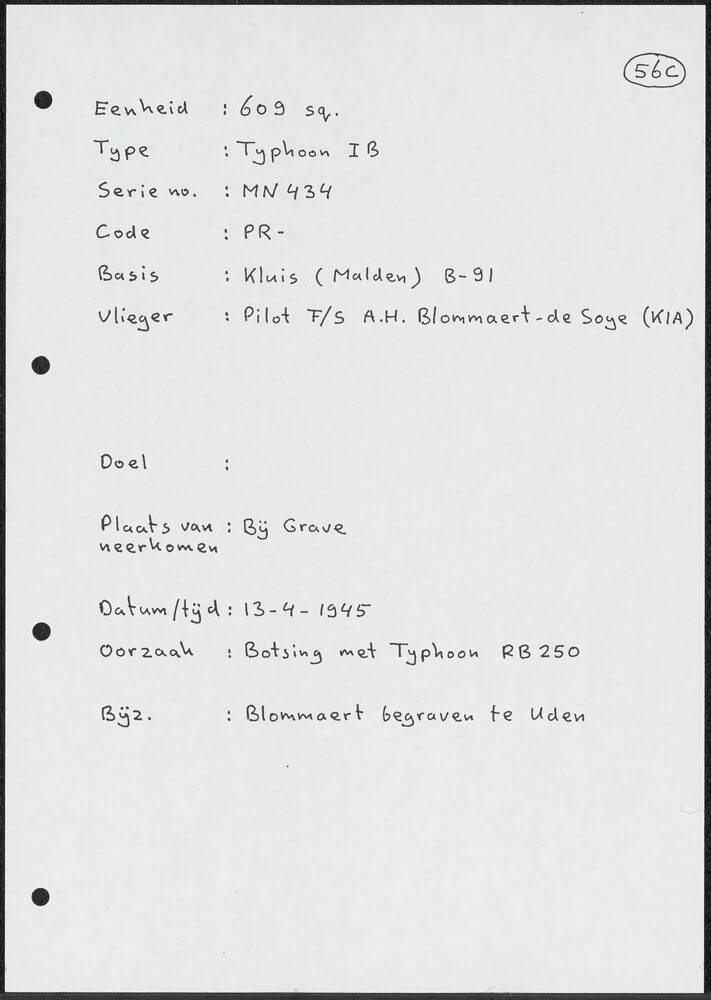 56C
Eenheid : 609 sq.
Type : Typhoon IB
Serie no. : MN 434
Code : PR-
Basis : Kluis (Malden) B-91
Vlieger : Pilot F/S A.H. Blommaert-de Soye (KIA)
Doel :
Plaats van : Bij Grave
neerkomen
Datum/tijd : 13-4-1945
Oorzaak : Botsing met Typhoon RB 250
Bijz. : Blommaert begraven te Uden